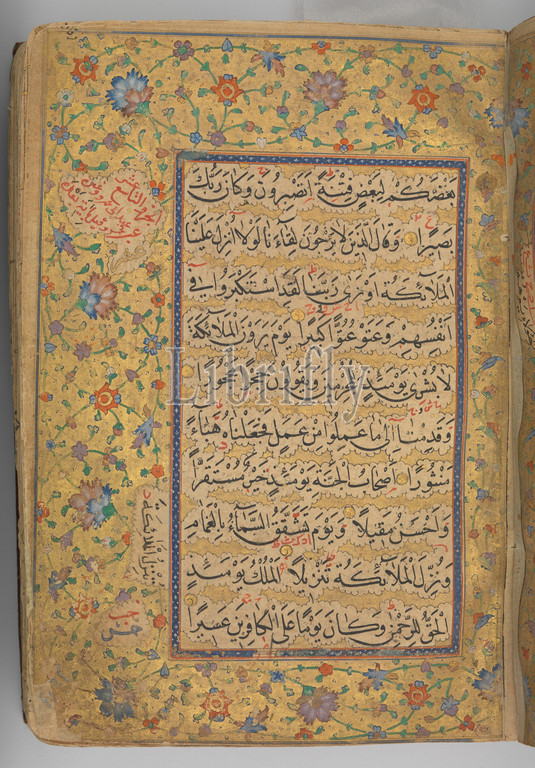 بعضكم لبعض فتنة اتصبرون وكان ربك
بصيرا وقال الذين لا يرجون لقاءنا لولا انزل علينا
الملائكة او نرى ربنا لقد استكبروا في
انفسهم وعتو عتوا كبيرا يوم يرون الملائكة
لا بشرى يومئذ للمجرمين ويقولون حجرا محجورا
وقدمنا الى ما عملوا من عمل فجعلناه هباء
منثورا اصحاب الجنة يومئذ خير مستقرا
واحسن مقيلا ويوم تشقق السماء بالغمام
ونزل الملائكة تنزيلا الملك يومئذ
الحق للرحمن وكان يوما على الكافرين عسيرا
Librifly